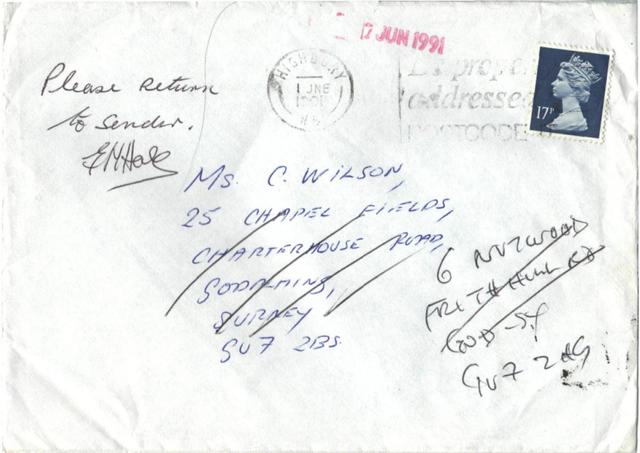 7 JUN 1991
HIGHBURY
1 JNE
1991
N5
properl
addressed
POSTCODE
17P
Please return
to Sender.
Ms. C. WILSON,
25 CHAPEL FIELDS,
CHARTERHOUSE ROAD,
GODALMING,
SURREY
GU7 2BS.
6 NUTWOOD
FRITH HILL RD
GOD - SY
GU7